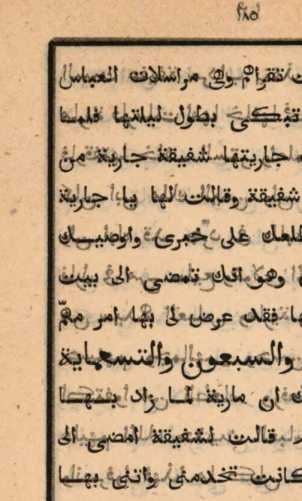 ١٨٥
تقراهم وهي مراسلات العباس
تبكي بطول ليلتها فلما
جاريتها شفيقة جارية من
شفيقة وقالت لها يا جارية
على خبري واوصيك
وهو انك تمضي الى بيت
فقد عرض لي بها امر مهمّ
والسبعون والتسعماية
ان مارية لما زاد بها
قالت لشفيقة امضي الى
كانت تخدمني وانني بها